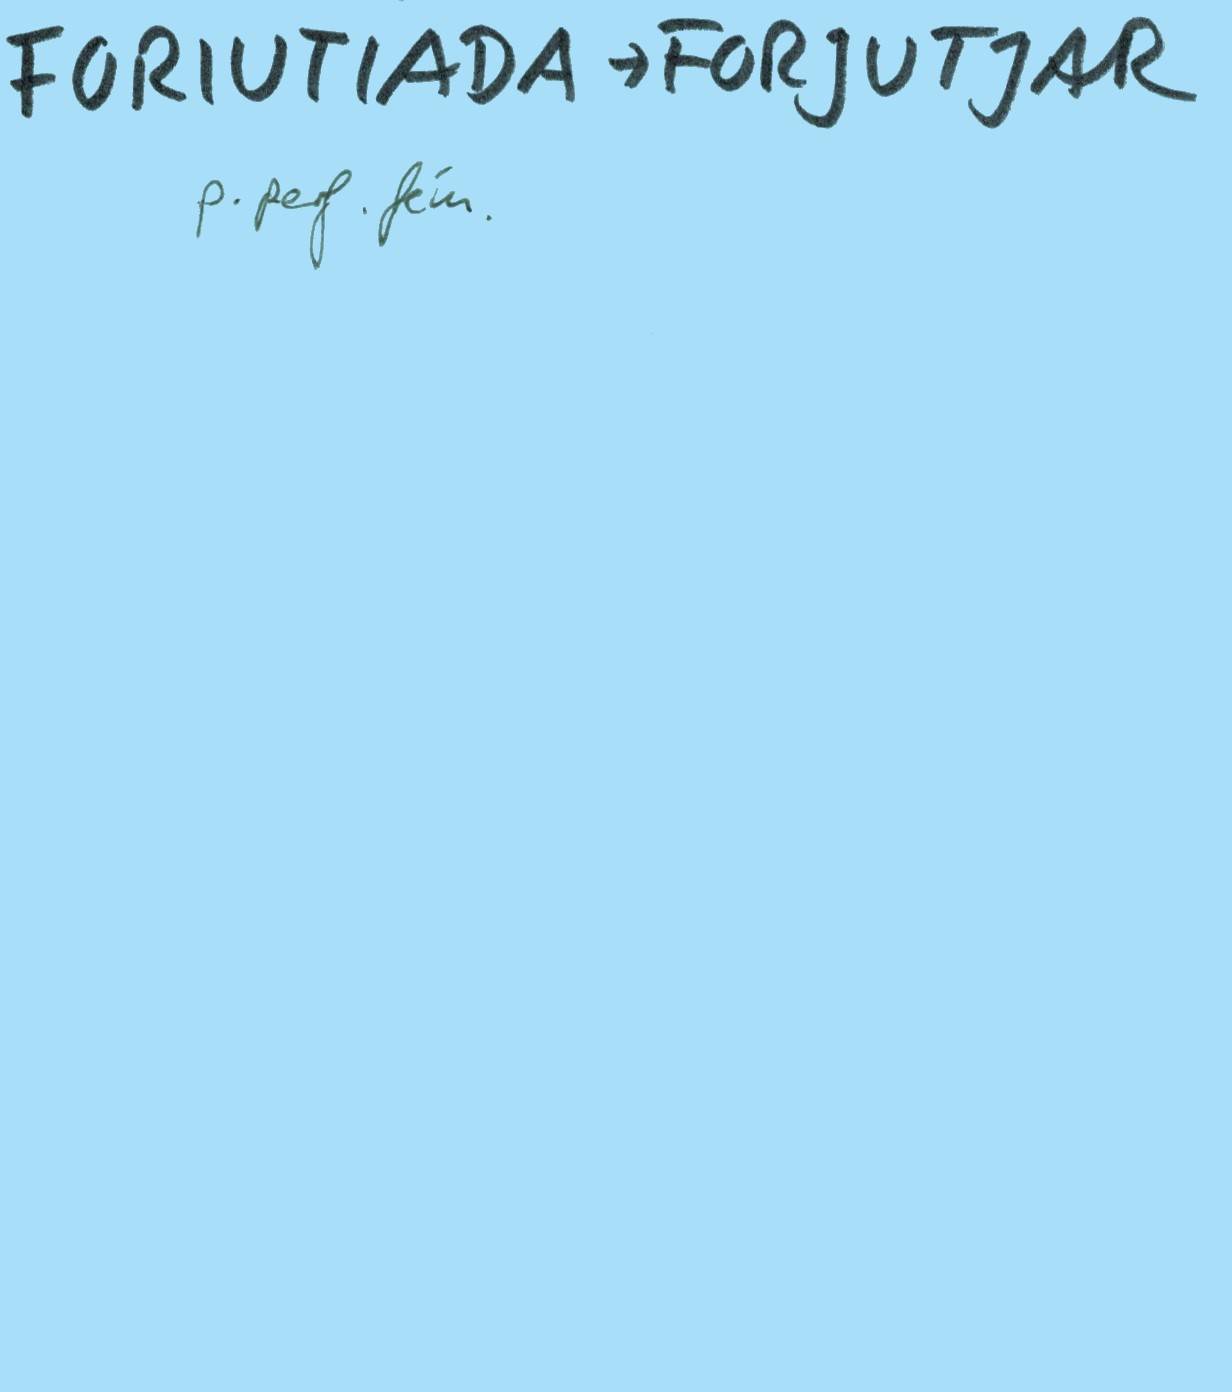 FORIUTIADA → FORJUTJAR
p. perf. fém.